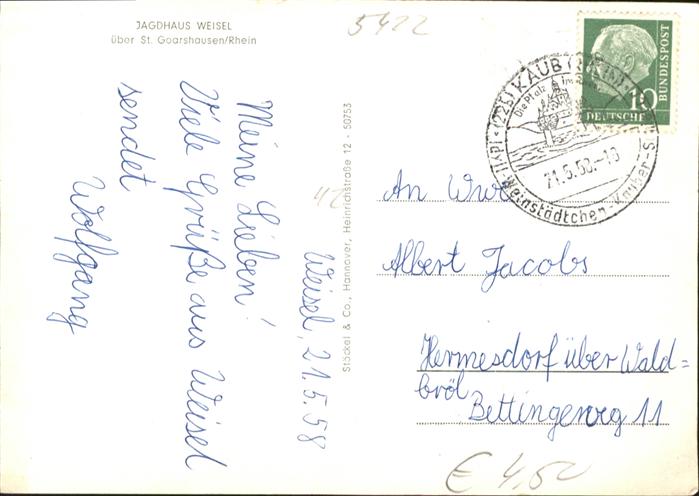 JAGDHAUS WEISEL
über St. Goarshausen/Rhein
5422
Weisel, 21.5.58
Meine Lieben!
Viele Grüße aus Weisel
sendet
Wolfgang
Stöckel & Co., Hannover, Heinrichstraße 12 - 50753
DEUTSCHE
BUNDESPOST
10
(22b) KAUB (RHEIN)
Die Pfalz im Rhein
21.5.58.-10
Weinstädtchen Kauber-S
An
Albert Jacobs
Hermesdorf über Wald=
bröl
Bettingerweg 11
€ 4,50